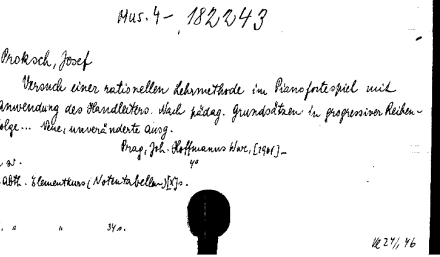 Mus. 4 - 182243
Proksch, Josef
Versuch einer rationellen Lehrmethode im Pianofortespiel mit
Anwendung des Handleiters. Nach pädag. Grundsätzen in progressiver Reihen-
olge... Neue, unveränderte Ausg.
Prag, Joh. Hoffmanns Wwe, [1901] -
4°
Abth. Elementkurs (Notentabellen) [X] s.
34 s.
24/46